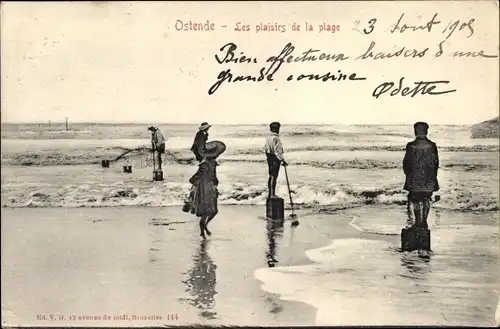 Ostende - Les plaisirs de la plage
23 Août 1905
Bien affectueux baisers d'une
grande cousine
Odette
Ed. V. D. 42 avenue du midi, Bruxelles 144